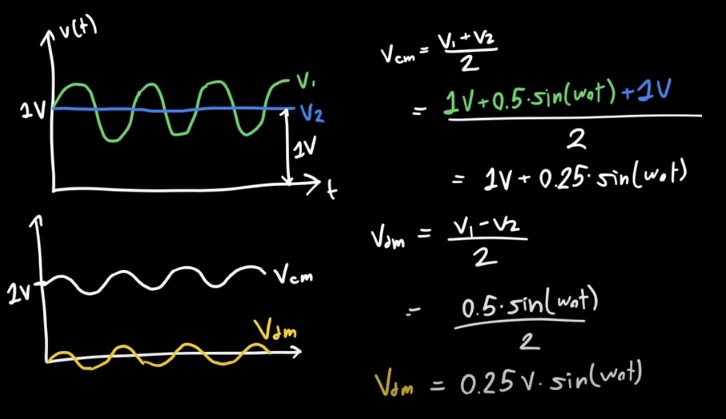 v(t)
V₁
1V
V₂
1V
t
1V
Vcm
Vdm
Vcm = V₁+V₂ / 2
= 1V+0.5·sin(w₀t)+1V / 2
= 1V+0.25·sin(w₀t)
Vdm = V₁-V₂ / 2
= 0.5·sin(w₀t) / 2
Vdm = 0.25V·sin(w₀t)